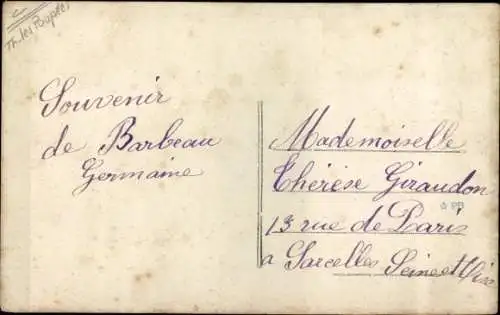 Th. les Poupées
Souvenir
de Barbeau
Germaine
Mademoiselle
Thérèse Giraudon
PB
13 rue de Paris
a Sarcelles Seine et Oise